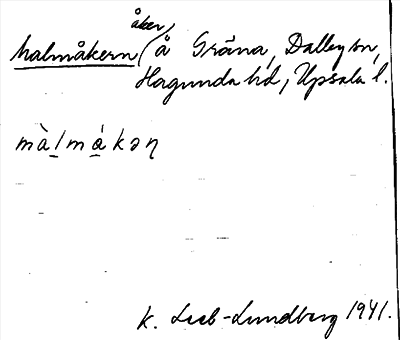 Malmåkern, åker, å Gräna, Dalby sn,
Hagunda hd, Upsala l.
mà̱lmǻ̱kəɳ
K. Leeb-Lundberg 1941.